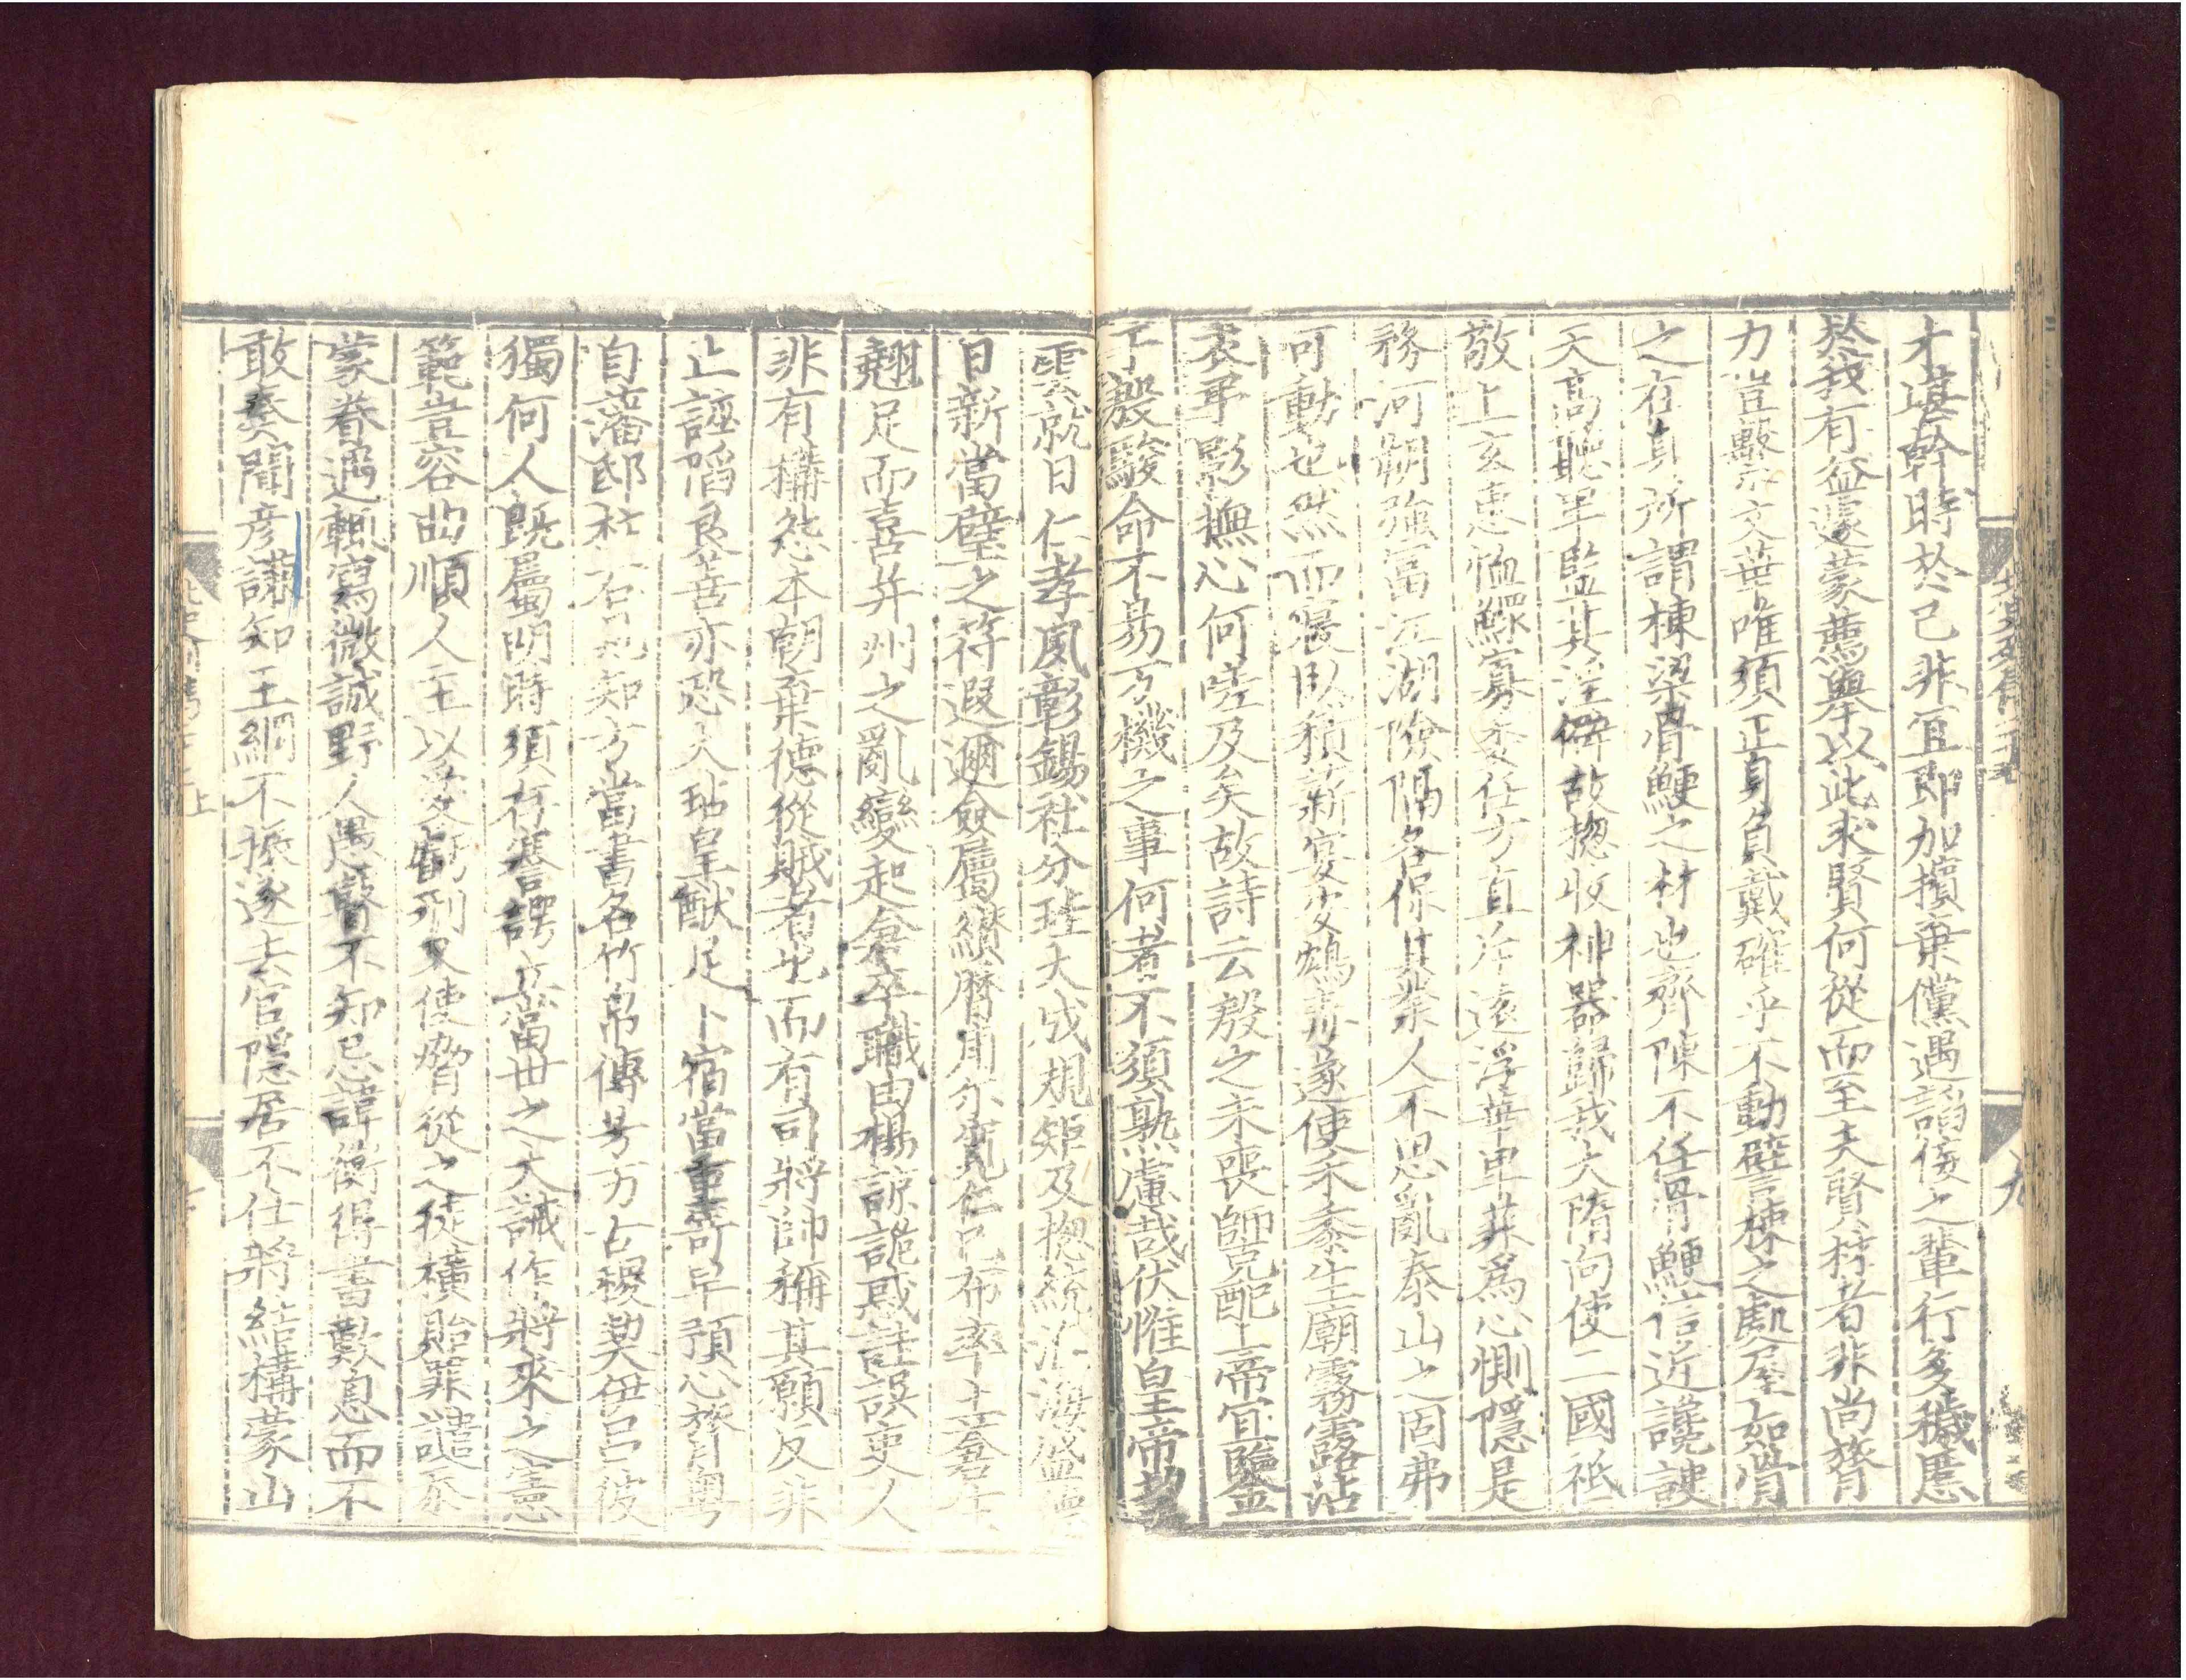 才堪幹時於己非宜即加擯棄儻遇諂佞之輩行多穢慝
於我有益遽蒙薦舉以此求賢何從而至夫賢材者非尚膂
力豈繫文華唯須正身負戴確乎不動譬棟之處屋如骨
之在身所謂棟梁骨鯁之材也齊陳不任骨鯁信近讒諛
天高聽卑監其淫僻故揔收神器歸我大隋向使二國祗
敬上玄惠恤鰥寡委任方直斥遠浮華卑菲爲心惻隱是
務河朔強富江湖險隔各保其業人不思亂泰山之固弗
可動也然而寢臥積薪宴安鴆毒遂使禾黍生廟霧露沾
衣弔影撫心何嗟及矣故詩云殷之未喪師克配上帝宜鑒
于殷駿命不易万機之事何者不須熟慮哉伏惟皇帝望
雲就日仁孝夙彰錫社分珪大成規矩及揔統淮海盛德
日新當璧之符遐邇僉屬纘曆甫尓寬仁已布率土蒼生
翹足而喜并州之亂變起倉卒職由楊諒詭惑詿誤吏人
非有構怨本朝棄德從賊者也而有司將帥稱其願反非
止誣䧟良善亦恐大玷皇猷足下宿當重寄早預心膂粵
自藩邸柱石見知方當書名竹帛傳芳万古稷契伊呂彼
獨何人旣屬明時須存謇諤立當世之大誡作將來之憲
範豈容曲順人主以愛虧刑又使脅從之徒橫貽罪譴忝
蒙眷遇輒寫微誠野人愚瞽不知忌諱衡得書歎息而不
敢奏聞彥謙知王綱不振遂去官隱居不仕將結構蒙山
九